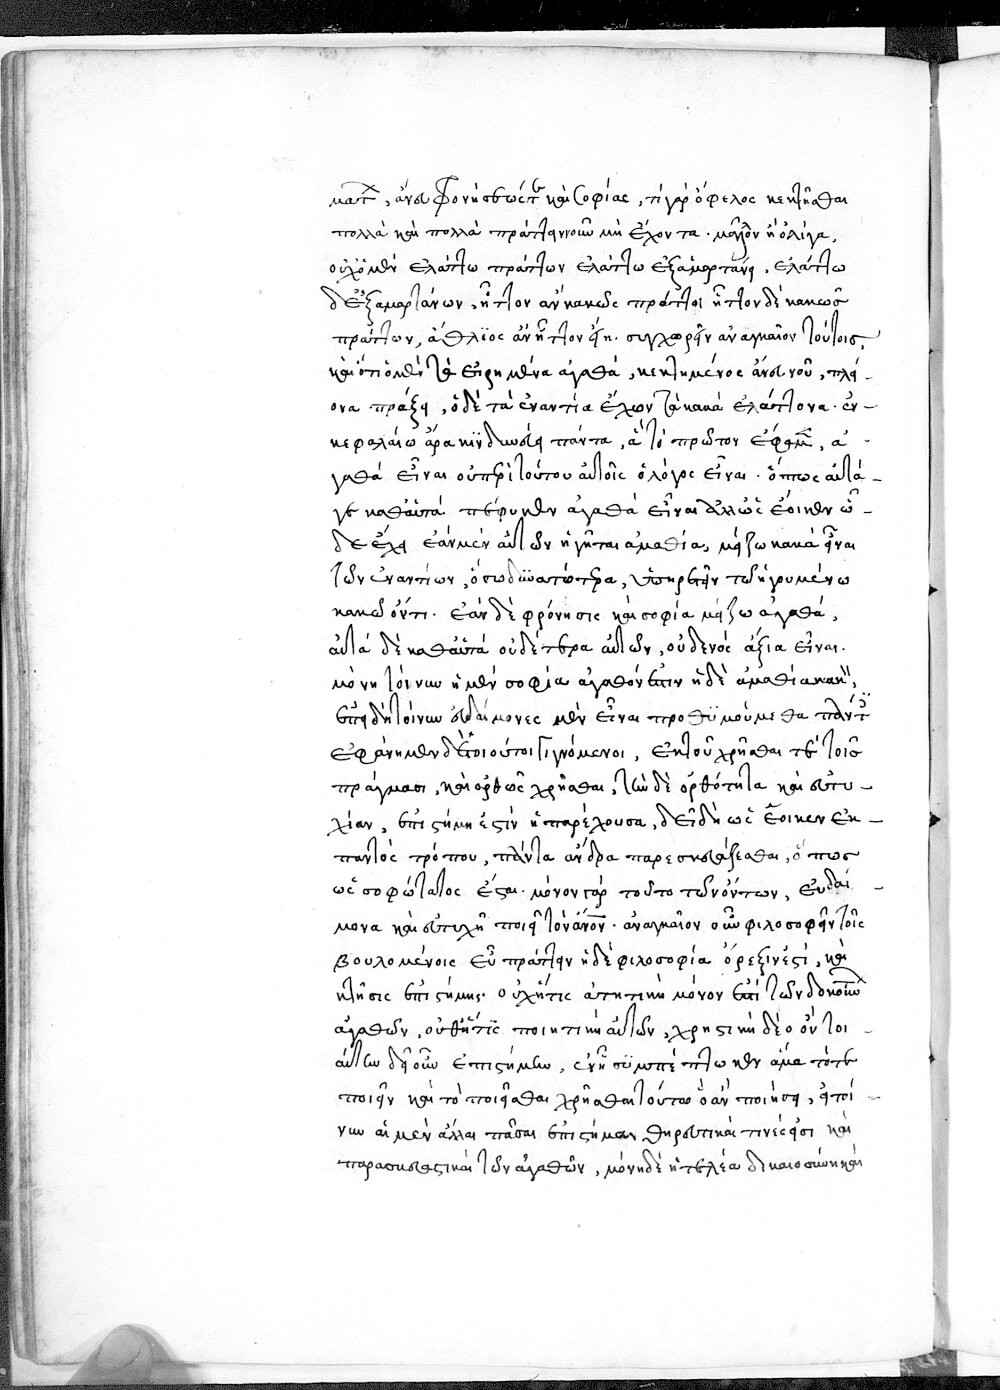 μάτων, ἄνευ φρονήσεώς τε καὶ σοφίας, τί γὰρ ὄφελος κεκτῆσθαι
πολλὰ καὶ πολλὰ πράττειν νοῦν μὴ ἔχοντα. μᾶλλον ἢ ὀλίγα,
οὐχ ὁ μὲν ἐλάττω πράττων ἐλάττω ἐξαμαρτάνει, ἐλάττω
δ' ἐξαμαρτάνων, ἧττον ἂν κακῶς πράττοι ἧττον δὲ κακῶς
πράττων, ἄθλιος ἂν ἧττον εἴη. συγχωρεῖν ἀναγκαῖον τούτοις,
καὶ ὅτι ὁ μὲν τὰ εἰρημένα ἀγαθὰ, κεκτημένος ἄνευ νοῦ, πλεί-
ονα πράξει, ὁ δὲ τὰ ἐναντία ἔχων τὰ κακὰ ἐλάττονα. ἐν
κεφαλαίω ἄρα κινδυνεύει πάντα, ἃ τὸ πρῶτον ἔφαμεν, ἀ-
γαθὰ εἶναι οὐ περὶ τούτου αὐτοῖς ὁ λόγος εἶναι. ὅπως αὐτά
γε καθ' αὑτὰ πέφυκεν ἀγαθὰ εἶναι ἀλλ' ὡς ἔοικεν ὧ-
δε ἔχει ἐὰν μὲν αὐτῶν ἡγῆται ἀμαθία, μείζω κακὰ εἶναι
τῶν ἐναντίων, ὅσω δυνατώτερα, ὑπηρετεῖν τῶ ἡγουμένω
κακῶ ὄντι. ἐὰν δὲ φρόνησις καὶ σοφία μείζω ἀγαθά,
αὐτὰ δὲ καθ' αὑτὰ οὐδέτερα αὐτῶν, οὐδενὸς ἄξια εἶναι.
μόνη τοίνυν ἡ μὲν σοφία ἀγαθόν ἐστιν ἡ δὲ ἀμαθία κακὴ,
ἐπειδὴ τοίνυν εὐδαίμονες μὲν εἶναι προθυμούμεθα πάντες
ἐφάνημεν δὲ τοιοῦτοι γιγνόμενοι, ἐκ τοῦ χρῆσθαί τε τοῖς
πράγμασι, καὶ ὀρθῶς χρῆσθαι, τὴν δὲ ὀρθότητα καὶ εὐτυ-
χίαν, ἐπιστήμη ἐστὶν ἡ παρέχουσα, δεῖ δὴ ὡς ἔοικεν ἐκ
παντὸς τρόπου, πάντα ἄνδρα παρεσκευάσθαι, ὅπως
ὡς σοφώτατος ἔσται. μόνον γὰρ τοῦτο τῶν ὄντων, εὐδαί-
μονα καὶ εὐτυχῆ ποιεῖ τὸν ἄνθρωπον. ἀναγκαῖον οὖν φιλοσοφεῖν τοῖς
βουλομένοις εὖ πράττειν ἡ δὲ φιλοσοφία ὄρεξίς ἐστι, καὶ
κτῆσις ἐπιστήμης. οὐχ ἥτις κτητικὴ μόνον ἐστὶ τῶν δοκούντων
ἀγαθῶν, οὐδ' ἥτις ποιητικὴ αὐτῶν, χρηστικὴ δὲ ὃ οὖν τοι
αύτης δεῖ οὖν ἐπιστήμης, ἐν ᾗ συμπέπτωκεν ἅμα τό τε
ποιεῖν καὶ τὸ ποιεῖσθαι χρῆσθαι τούτω ὃ ἂν ποιήση, εἰ τοί-
νυν αἱ μὲν ἄλλαι πᾶσαι ἐπιστῆμαι, θηρευτικαί τινές εἰσι καὶ
παρασκευαστικαὶ τῶν ἀγαθῶν, μόνη δὲ ἡ τελέα δικαιοσύνη καὶ